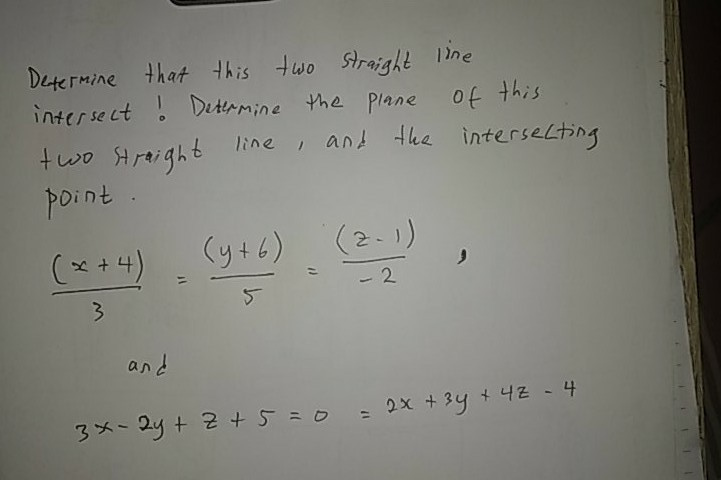 Determine that this two straight line
intersect ! Determine the plane of this
two straight line , and the intersecting
point .
(x + 4)/3 = (y + 6)/5 = (z - 1)/-2 ,
and
3x - 2y + z + 5 = 0 = 2x + 3y + 4z - 4